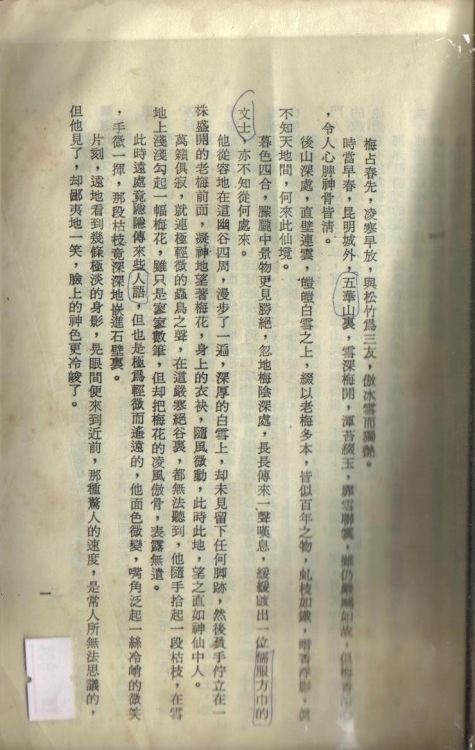 梅占春先，凌寒早放，與松竹爲三友，傲冰雪而獨艷。
時當早春，昆明城外，五華山裏，雪深梅開，渾苔綴玉，霏雪聯霙，雖仍嚴颸如故，但梅香沁心
，令人心脾神骨皆清。
後山深處，直壁連雲，皚皚白雪之上，綴以老梅多本，皆似百年之物，虬枝如鐵，暗香浮影，眞
不知天地間，何來此仙境。
暮色四合，朦朧中景物更見勝絕，忽地梅陰深處，長長傳來一聲嘆息，緩緩踱出一位儒服方巾的
文士，亦不知從何處來。
他從容地在這幽谷四周，漫步了一遍，深厚的白雪上，却未見留下任何脚跡，然後負手佇立在一
株盛開的老梅前面，凝神地望著梅花，身上的衣袂，隨風微動，此時此地，望之直如神仙中人。
萬籟俱寂，就連極輕微的蟲鳥之聲，在這嚴寒絕谷裏，都無法聽到，他隨手拾起一段枯枝，在雪
地上淺淺勾起一幅梅花，雖只是寥寥數筆，但却把梅花的凌風傲骨，表露無遺。
此時遠處竟隱隱傳來些人語，但也是極爲輕微而遙遠的，他面色微變，嘴角泛起一絲冷峭的微笑
，手微一揮，那段枯枝竟深深地嵌進石壁裏。
片刻，遠地看到幾條極淡的身影，晃眼間便來到近前，那種驚人的速度，是常人所無法思議的，
但他見了，却鄙夷地一笑，臉上的神色更冷峻了。
一